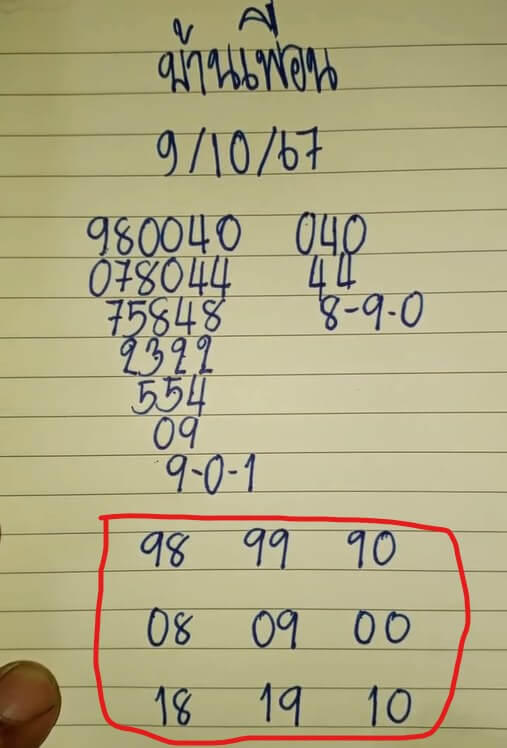 บ้านเพื่อน
9/10/67
980040 040
078044 44
75848 8-9-0
2322
554
09
9-0-1
98 99 90
08 09 00
18 19 10